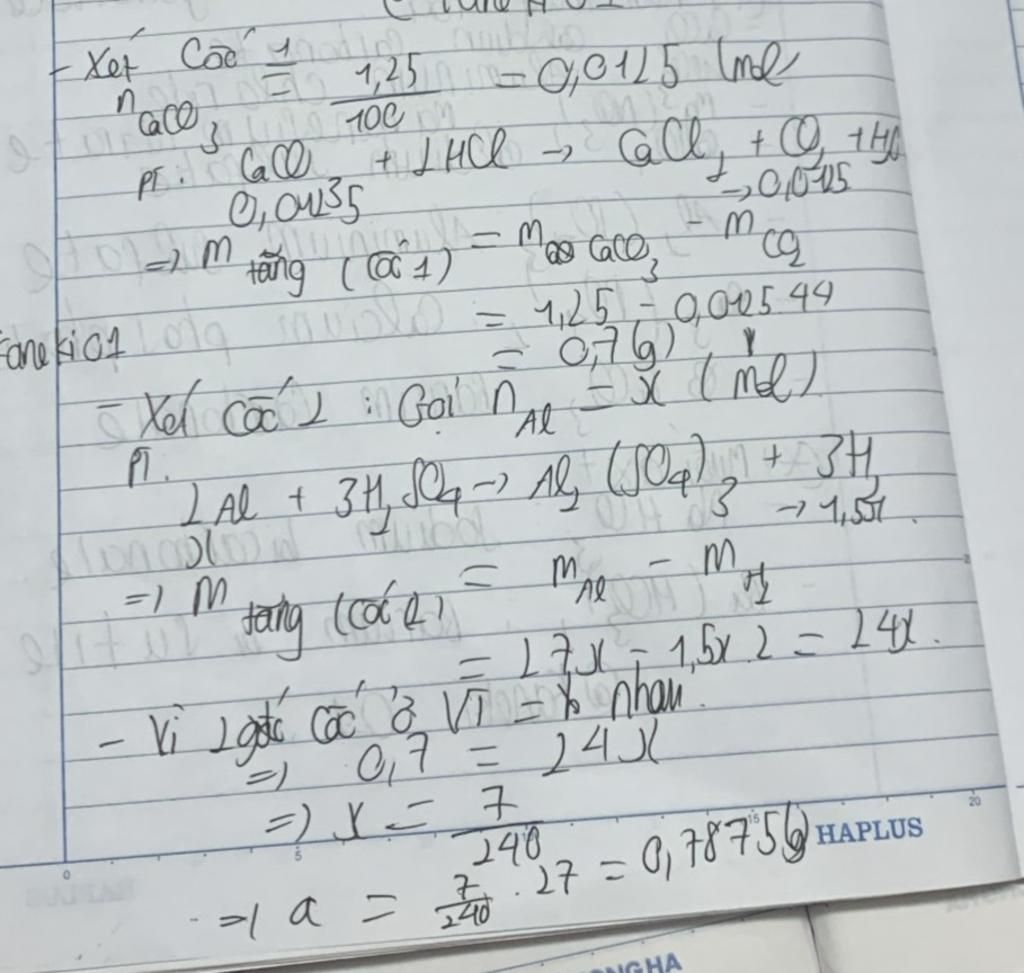 - Xét Cốc 1
n CaCO3 = 1,25/100 = 0,0125 (mol)
PT: CaCO3 + 2HCl → CaCl2 + CO2 + H2O
0,0125 → 0,0125
=> m tăng (cốc 1) = m CaCO3 - m CO2
= 1,25 - 0,0125.44
= 0,7 (g)
- Xét Cốc 2 : Gọi n Al = x (mol)
PT.
2Al + 3H2SO4 → Al2(SO4)3 + 3H2
x → 1,5x
=> m tăng (cốc 2) = m Al - m H2
= 27x - 1,5x.2 = 24x.
- Vì 2 cốc ở VT = nhau.
=> 0,7 = 24x
=> x = 7/240
=> a = 7/240 . 27 = 0,7875(g)
0 5 15 20
HAPLUS
NGHA